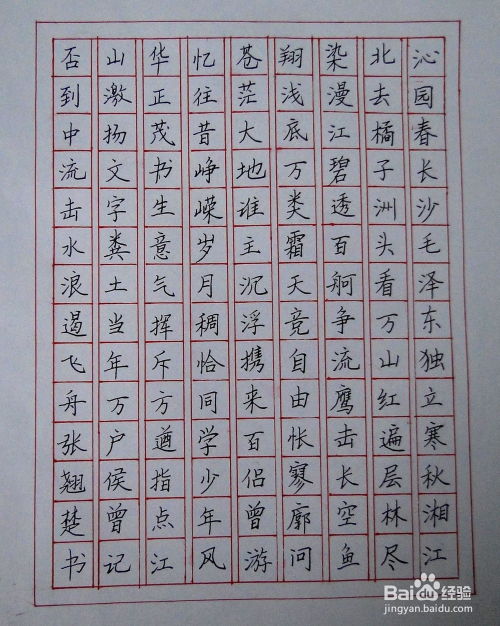 沁园春长沙毛泽东独立寒秋湘江
北去橘子洲头看万山红遍层林尽
染漫江碧透百舸争流鹰击长空鱼
翔浅底万类霜天竞自由怅寥廓问
苍茫大地谁主沉浮携来百侣曾游
忆往昔峥嵘岁月稠恰同学少年风
华正茂书生意气挥斥方遒指点江
山激扬文字粪土当年万户侯曾记
否到中流击水浪遏飞舟张翘楚书
Baidu经验
jingyan.baidu.com